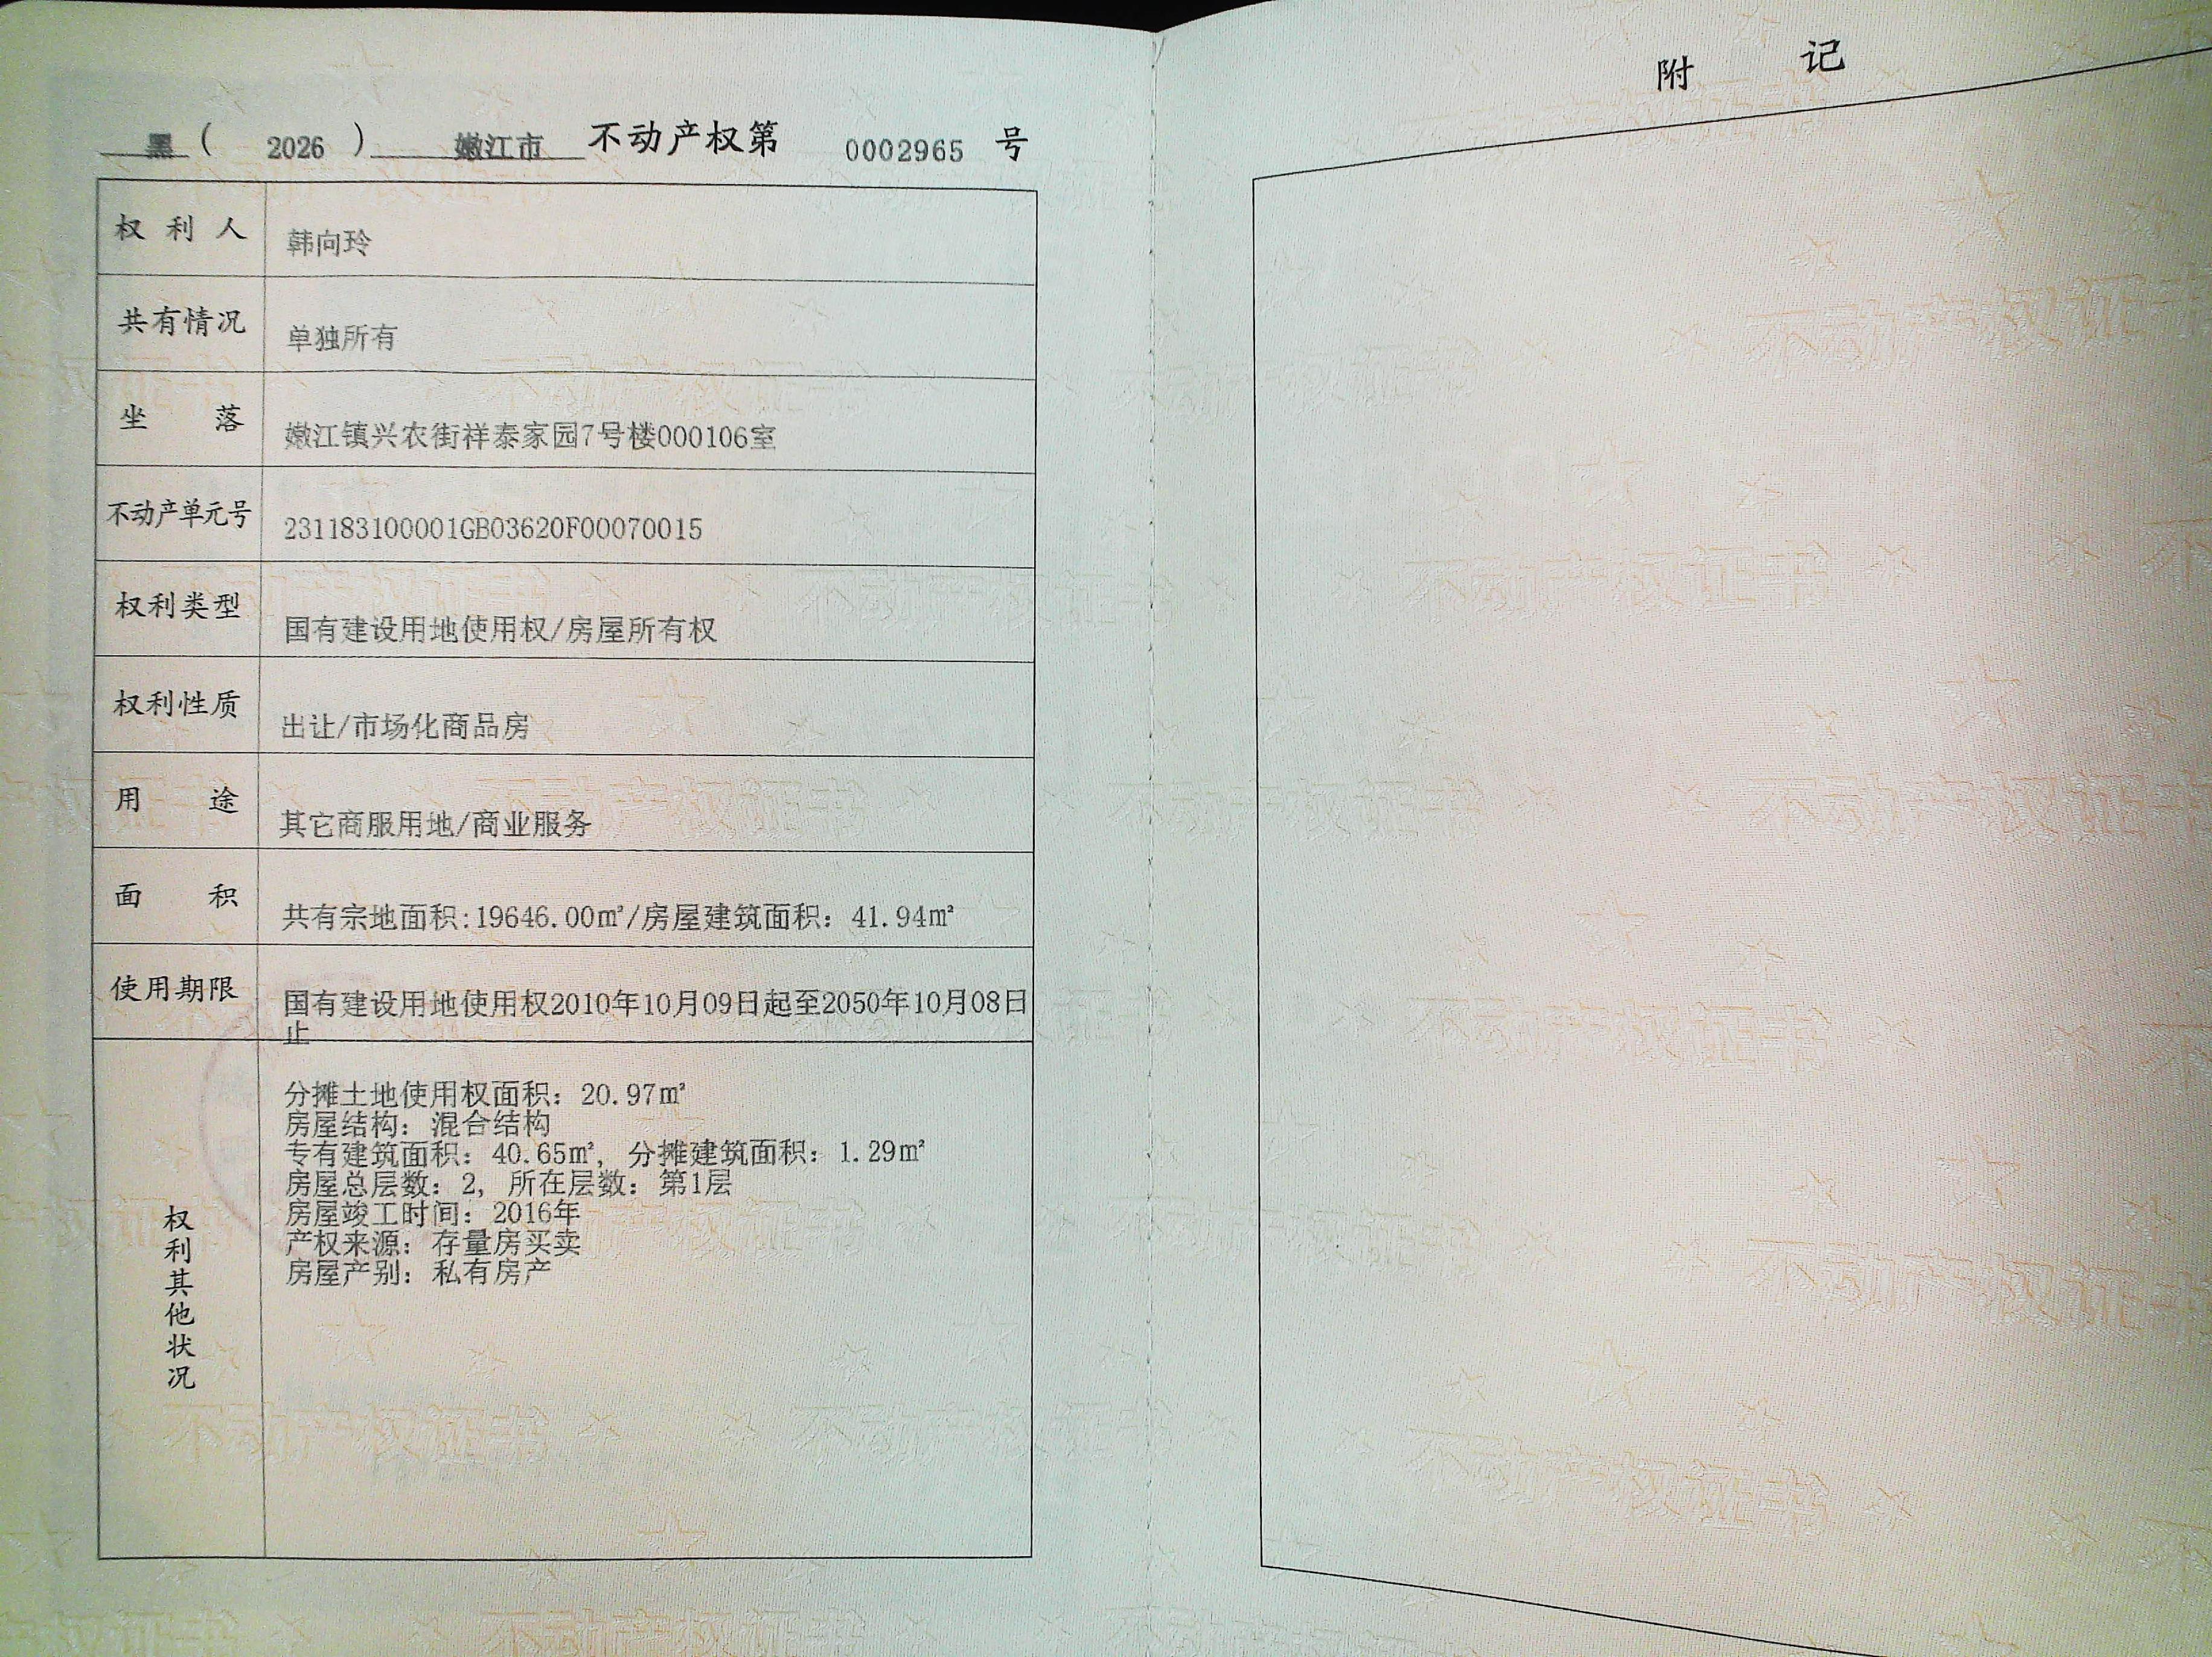 黑（ 2026 ） 嫩江市 不动产权第 0002965 号
权利人 韩向玲
共有情况 单独所有
坐落 嫩江镇兴农街祥泰家园7号楼000106室
不动产单元号 231183100001GB03620F00070015
权利类型 国有建设用地使用权/房屋所有权
权利性质 出让/市场化商品房
用途 其它商服用地/商业服务
面积 共有宗地面积:19646.00㎡/房屋建筑面积：41.94㎡
使用期限 国有建设用地使用权2010年10月09日起至2050年10月08日
止
权利其他状况
分摊土地使用权面积：20.97㎡
房屋结构：混合结构
专有建筑面积：40.65㎡，分摊建筑面积：1.29㎡
房屋总层数：2，所在层数：第1层
房屋竣工时间：2016年
产权来源：存量房买卖
房屋产别：私有房产
附记
不动产权证书